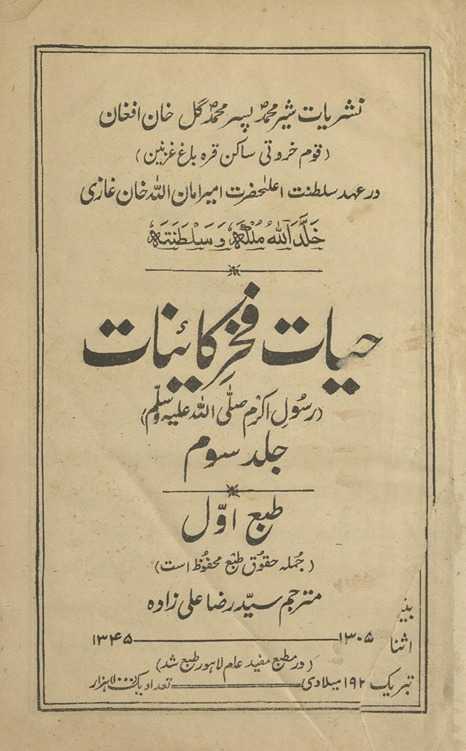 نشریات شیر محمد پسر محمد گل خان افغان
(قوم خروتی ساکن قره باغ غزنین)
در عهد سلطنت اعلیحضرت امیر امان الله خان غازی
خَلَّدَ اللهُ مُلْکَهٗ وَ سَلْطَنَتَهٗ
حیات فخر کائنات
(رسول اکرم صلی الله علیه وسلم)
جلد سوم
طبع اوّل
(جمله حقوق طبع محفوظ است)
مترجم سیّد رضا علی زاده
۱۳۰۵ ۱۳۴۵
(در مطبع مفید عام لاهور طبع شد)
۱۹۲ میلادی تعداد یک هزار